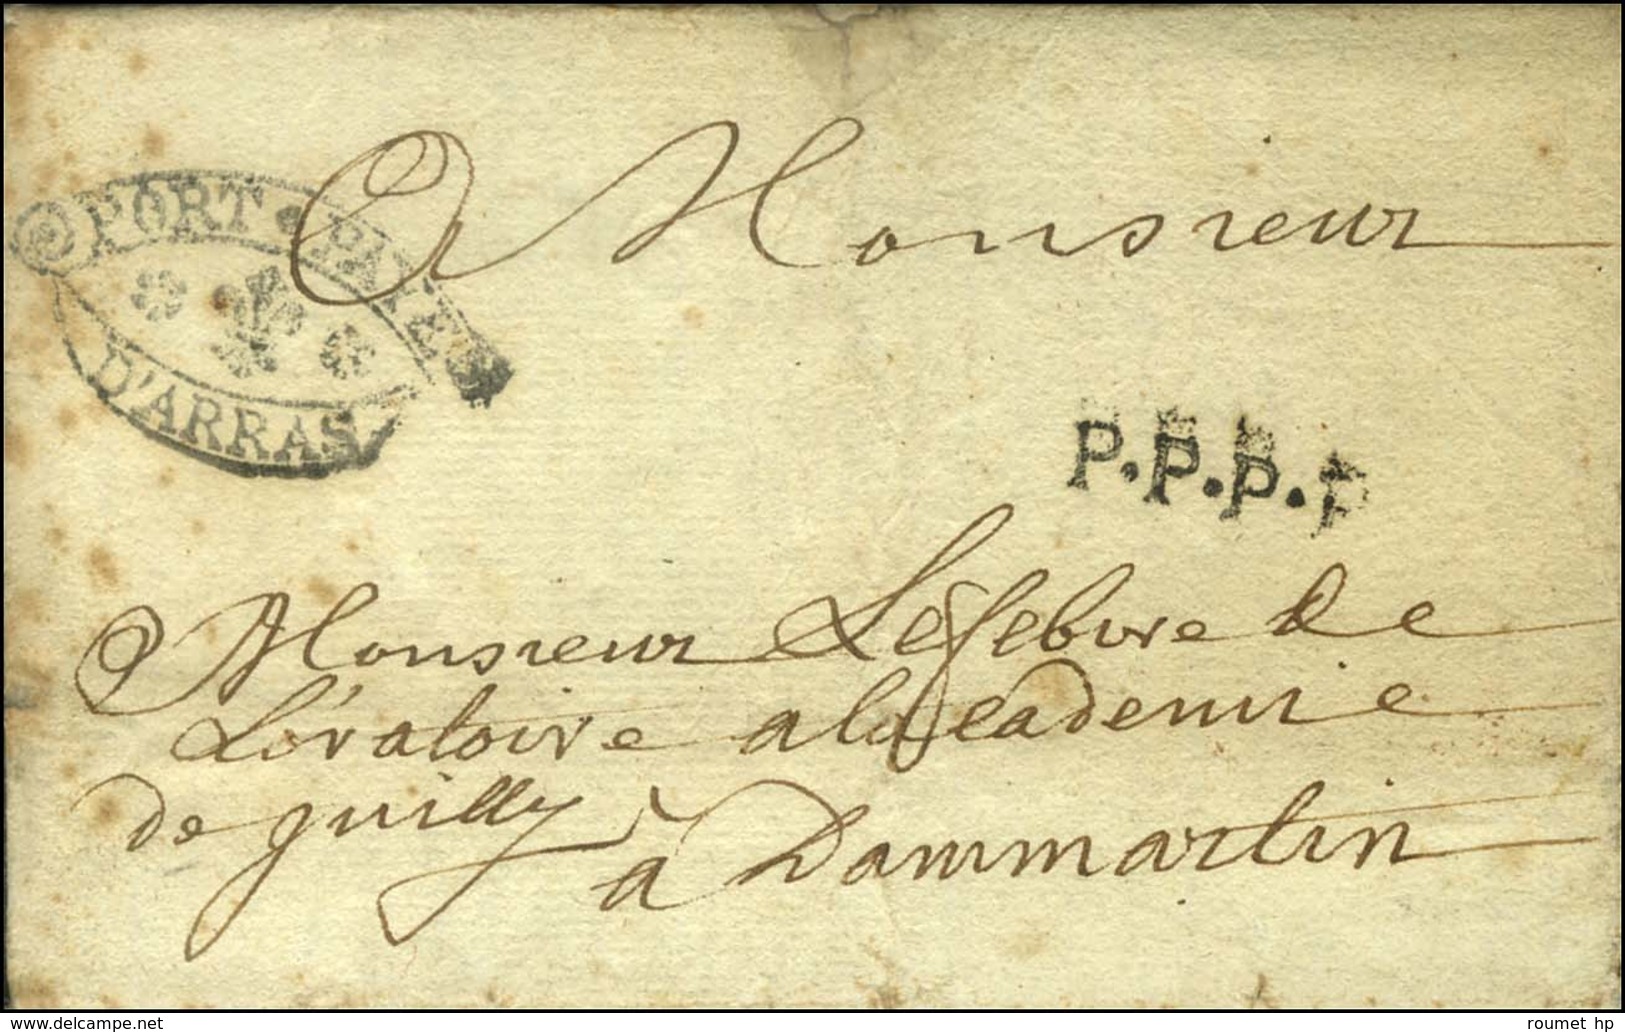 PORT • PAYÉ
D'ARRAS
A Monsieur
P.P.P.P
Monsieur Lefebvre de
L'oratoire a lacademie
de juilly
à Dammartin
delcampe.net
roumet_hp